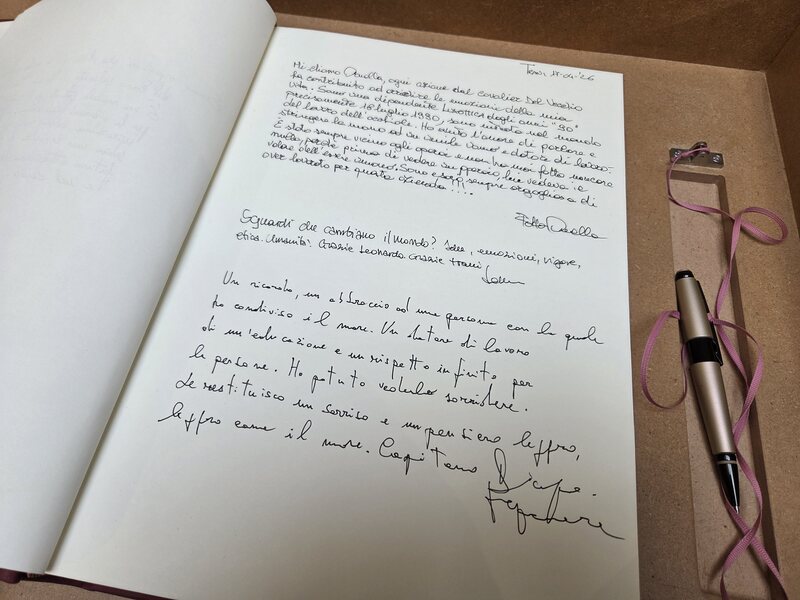 Trani, 18-04-26
Mi chiamo Ornella, ogni azione del cavalier Del Vecchio
ha contribuito ad arredire le emozioni della mia
vita. Sono una dipendente Luxottica dagli anni "90"
precisamente 18 luglio 1990, sono entrata nel mondo
del lavoro dell'occhiale. Ho avuto l'onore di parlare e
stringere la mano ad un umile uomo e datore di lavoro.
È stato sempre vicino agli operai e non ha mai fatto mancare
nulla, perché prima di vedere un operaio, lui vedeva il
valore dell'essere umano. Sono e sarò sempre orgogliosa di
aver lavorato per questa azienda !!!!
Ornella
Sguardi che cambiano il mondo? Sole, emozioni, vigore,
etica. Umanità. Grazie Leonardo. Grazie Trani
Un ricordo, un abbraccio ad una persona con la quale
ho condiviso il mare. Un datore di lavoro
di un'educazione e un rispetto infinito per
le persone. Ho potuto vederla sorridere.
Le restituisco un sorriso e un pensiero leggero,
leggero come il mare. Capitano